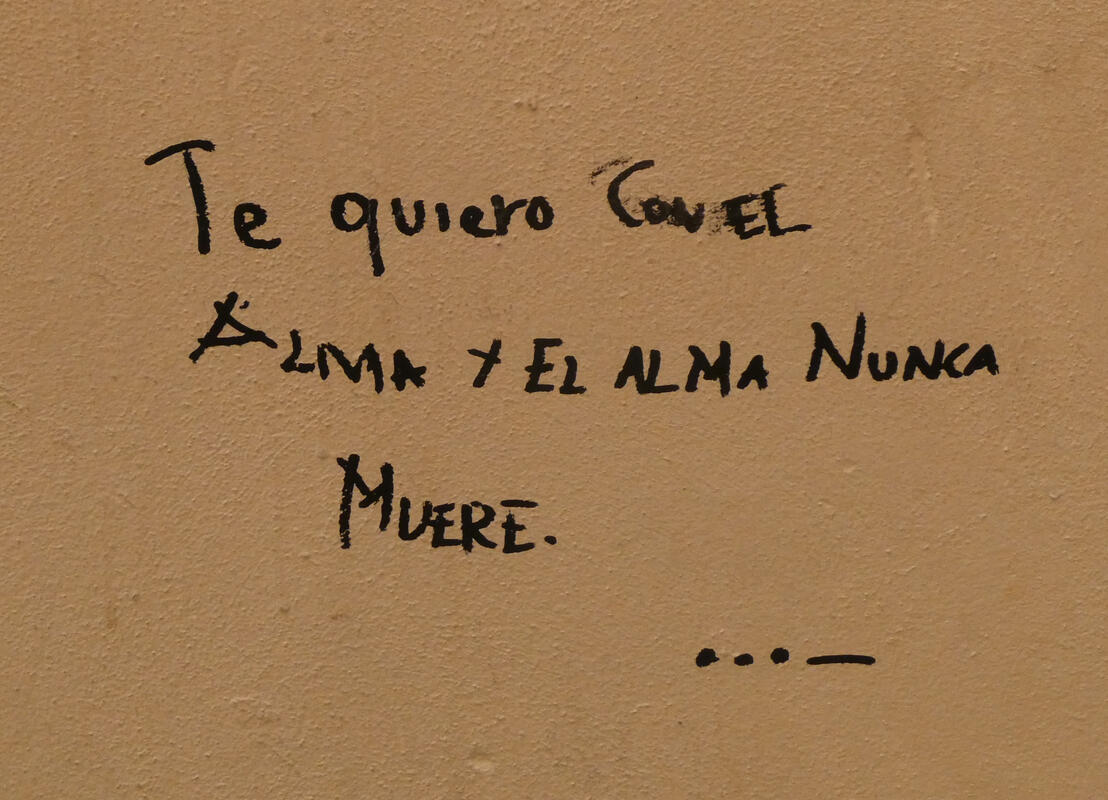 Te quiero Con EL
ALMA Y EL ALMA NUNCA
MUERE.
...—